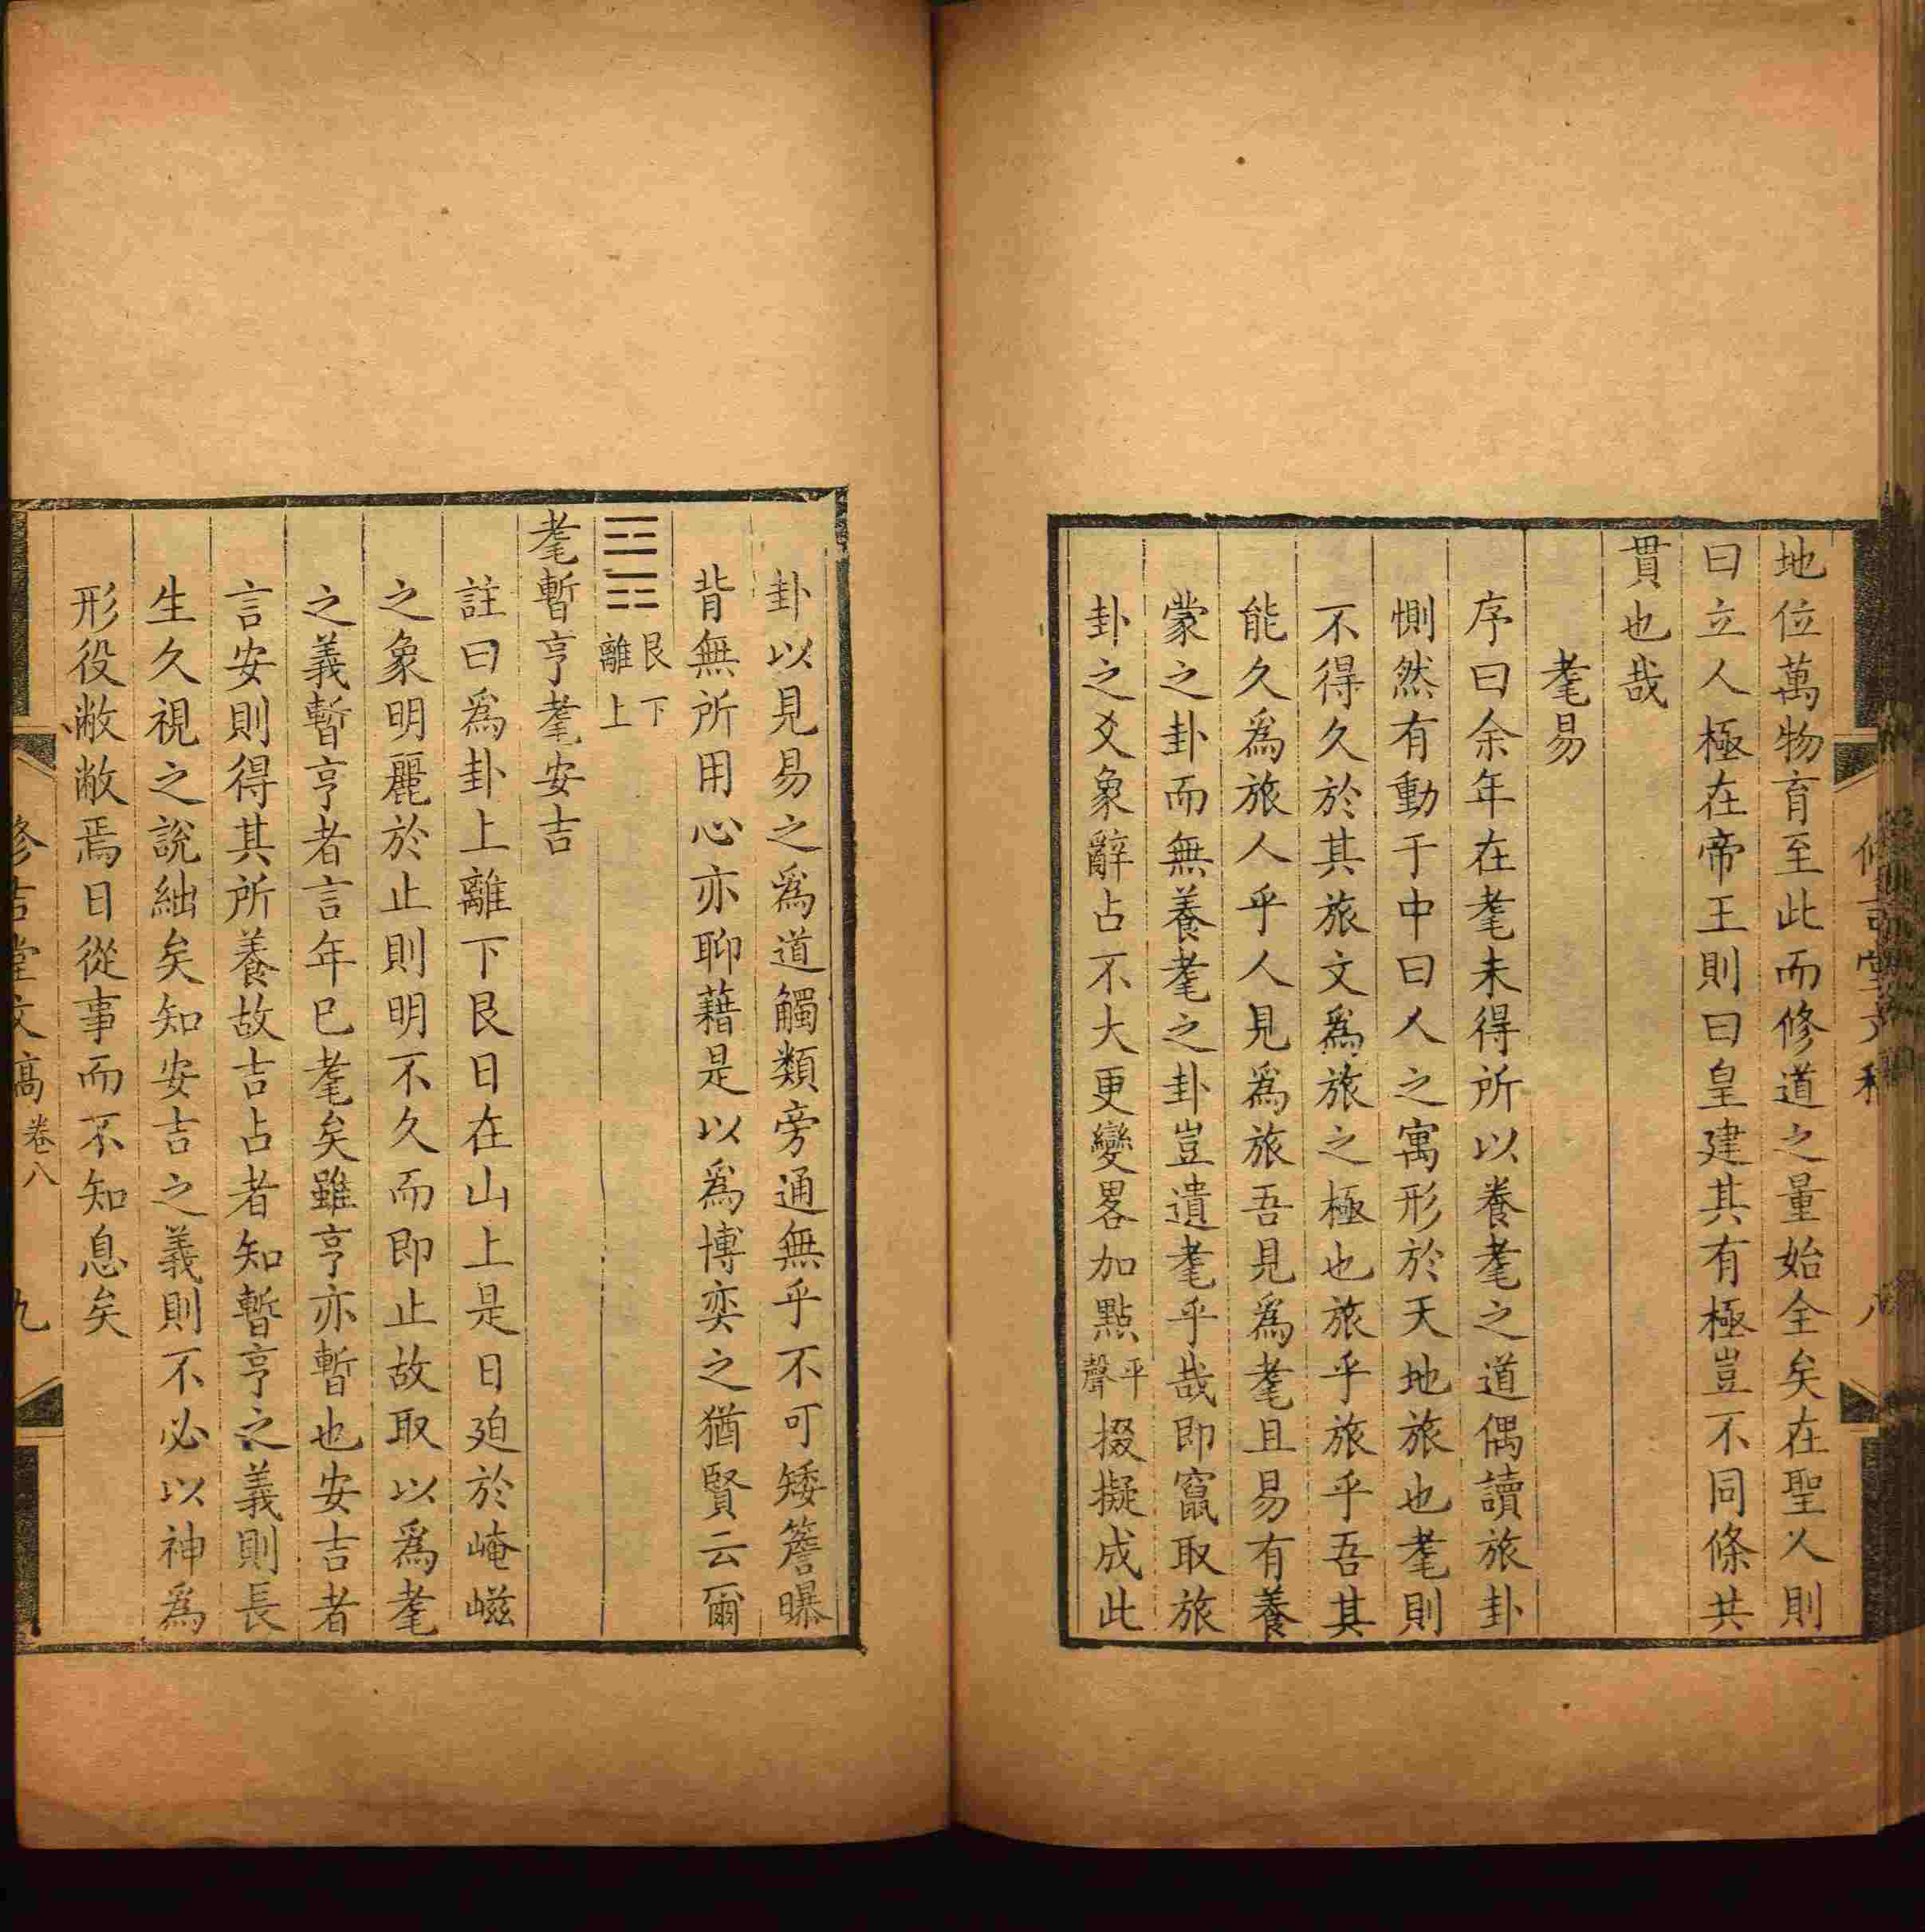 地位萬物育至此而修道之量始全矣在聖人則
曰立人極在帝王則曰皇建其有極豈不同條共
貫也哉
耄易
序曰余年在耄未得所以養耄之道偶讀旅卦
惻然有動于中曰人之寓形於天地旅也耄則
不得久於其旅文爲旅之極也旅乎旅乎吾其
能久爲旅人乎人見爲旅吾見爲耄且易有養
蒙之卦而無養耄之卦豈遺耄乎哉即竄取旅
卦之爻象辭占不大更變畧加點平聲掇擬成此
卦以見易之爲道觸類旁通無乎不可矮簷曝
背無所用心亦聊藉是以爲博奕之猶賢云爾
艮下離上
耄暫亨耄安吉
註曰爲卦上離下艮日在山上是日廹於崦嵫
之象明麗於止則明不久而即止故取以爲耄
之義暫亨者言年已耄矣雖亨亦暫也安吉者
言安則得其所養故吉占者知暫亨之義則長
生久視之說絀矣知安吉之義則不必以神爲
形役敝敝焉日從事而不知息矣
修吉堂文稿卷八 九